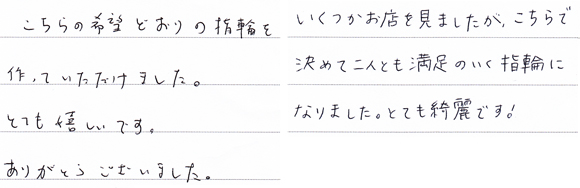 こちらの希望どおりの指輪を
作っていただけました。
とても嬉しいです。
ありがとうございました。
いくつかお店を見ましたが、こちらで
決めて二人とも満足のいく指輪に
なりました。とても綺麗です!